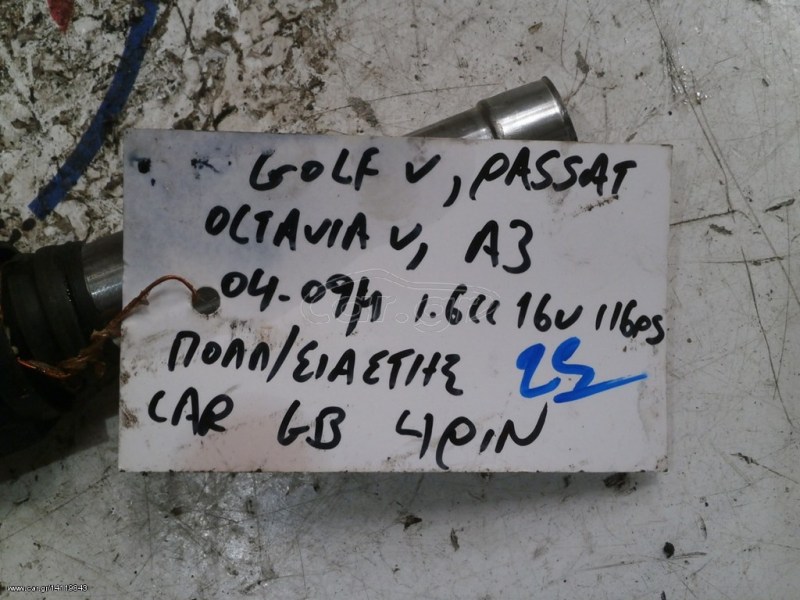 GOLF V, PASSAT
OCTAVIA V, A3
04-09/4 1.6cc 16v 116ps
ΠΟΛΛ/ΣΙΑΣΤΗΣ 25
CAR GB 4PIN
www.car.gr/14119943